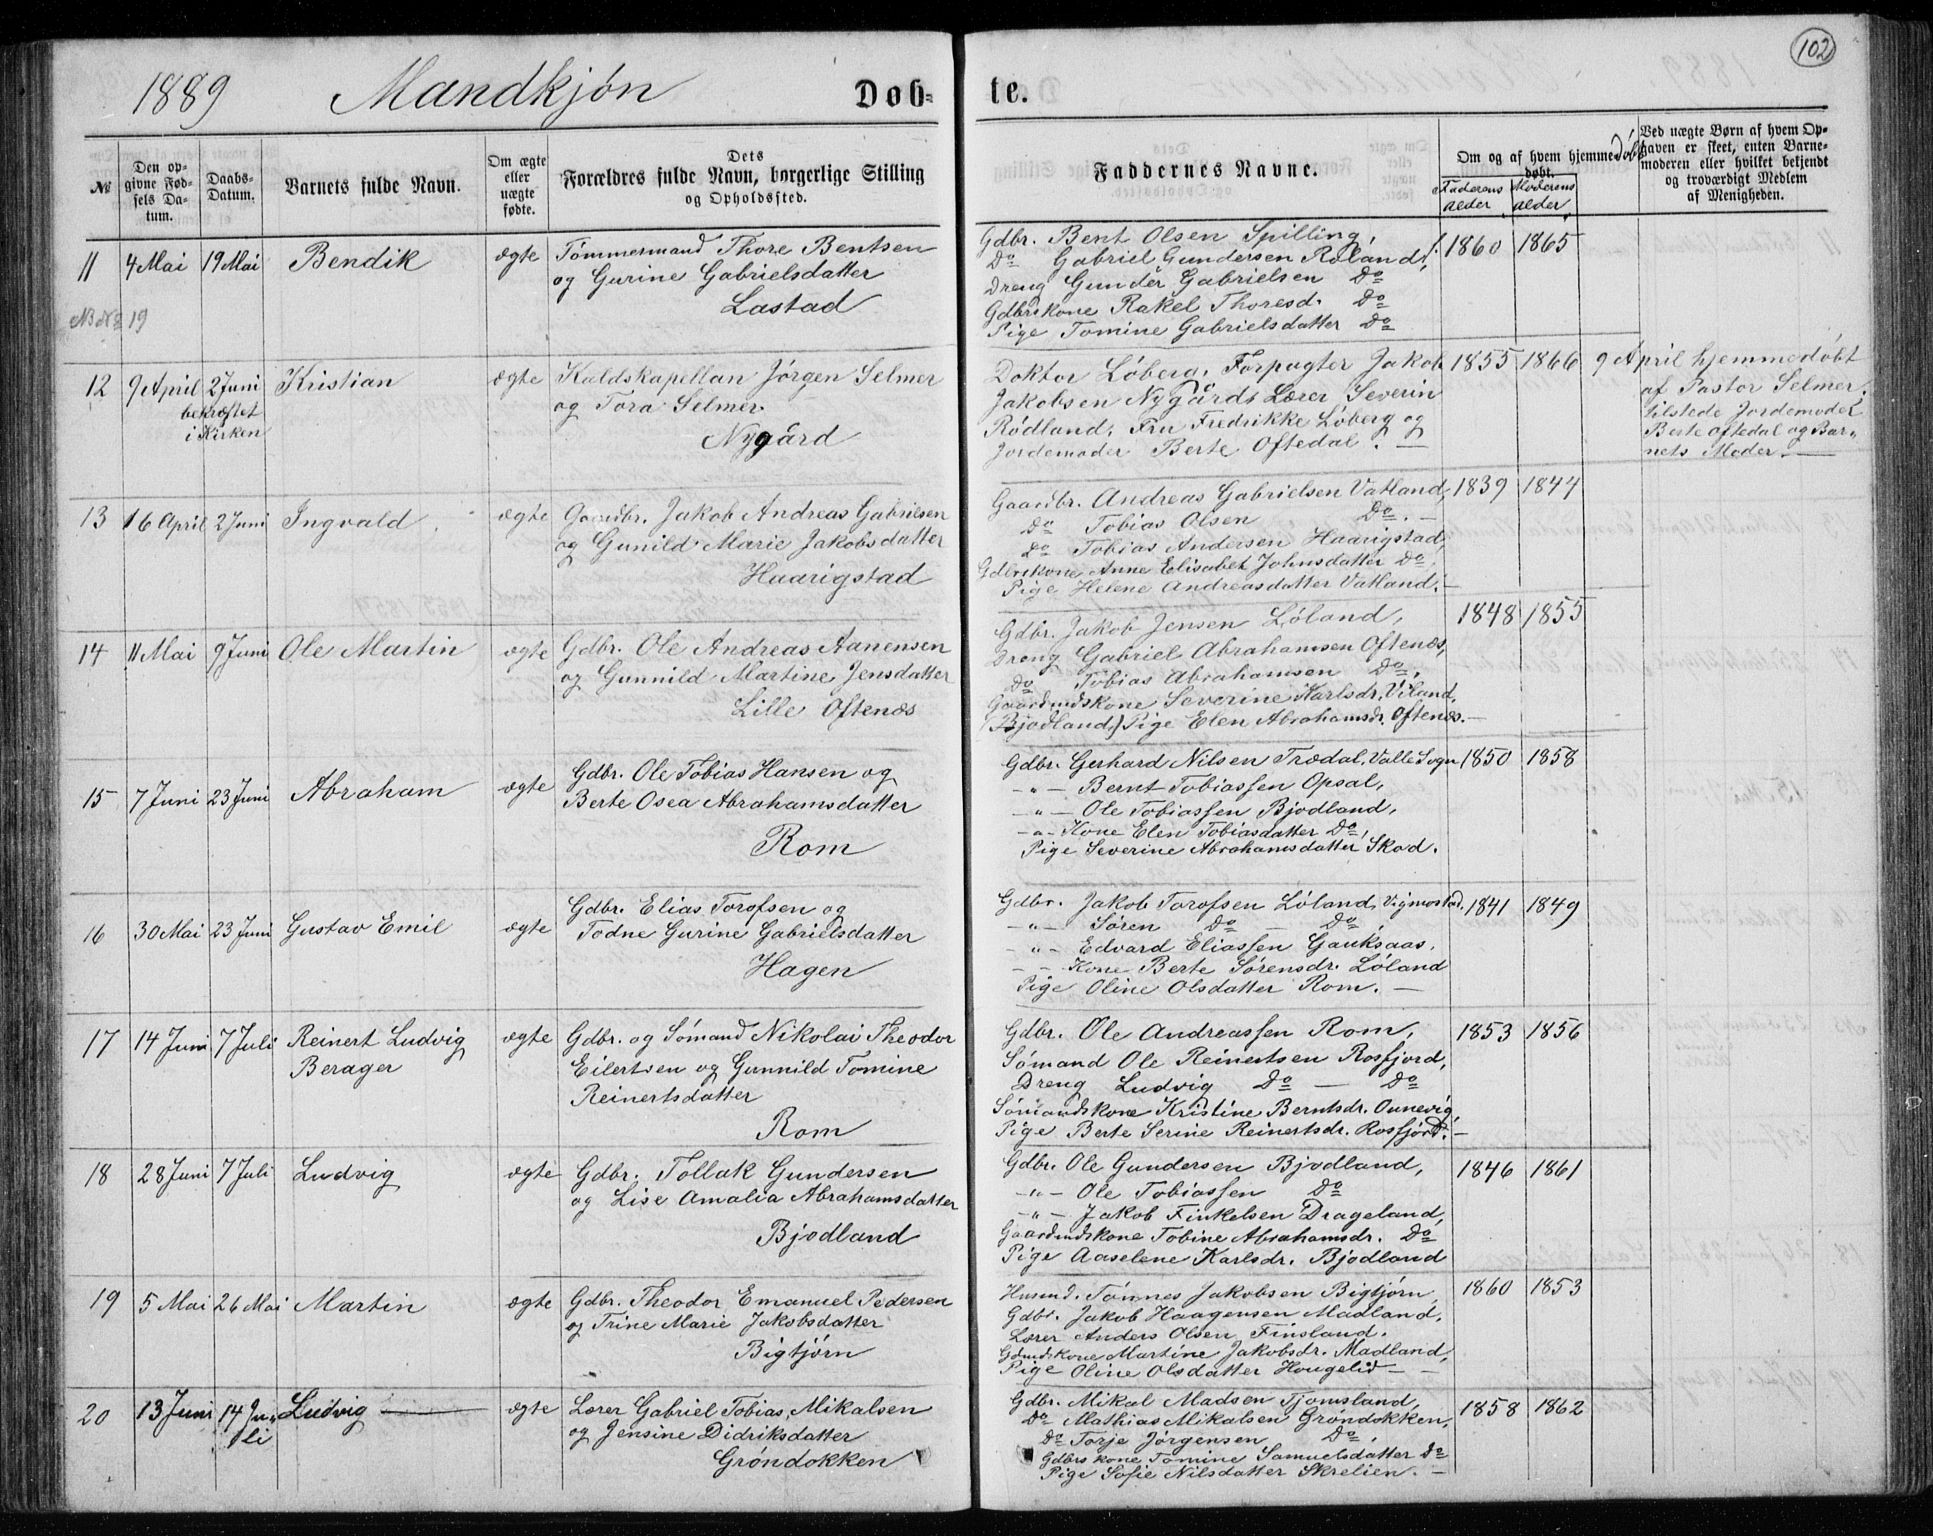 102
1889 Mandkjøn Døb= te.
№
Den op-
givne Fød-
sels Da-
tum.
Daabs-
Datum.
Barnets fulde Navn.
Om ægte
eller
uægte
fødte.
Dets
Forældres fulde Navn, borgerlige Stilling
og Opholdssted.
Faddernes Navne.
Om og af hvem hjemmedøbt
døbt.
Faderens
alder
Moderens
alder
Ved uægte Børn af hvem Op-
gaven er skeet, enten Barne-
moderen eller hvilket bekjendt
og troværdigt Medlem
af Menigheden.
11 4 Mai 19 Mai Bendik ægte
NB № 19
Tømmermand Thore Bentsen
og Gurine Gabrielsdatter
Lastad
Gdbr. Bent Olsen Spilling,
Do Gabriel Gundersen Røland,
Dreng Gunder Gabrielsen Do
Gdbrskone Rakel Thoresd. Do
Pige Tomine Gabrielsdatter Do
1860 1865
12 9 April 2 Juni Kristian ægte
bekræftet
i Kirken
Kaldskapellan Jørgen Selmer
og Tora Selmer
Nygård
Doktor Løberg, Forpagter Jakob
Jakobsen Nygård, Lærer Severin
Rödland, Fru Fredrikke Løberg og
Jordemoder Berte Oftedal. —
1855 1866
9 April hjemmedøbt
af Pastor Selmer.
tilstede Jordemoder
Berte Oftedal og Bar-
nets Moder. —
13 16 April 2 Juni Ingvald ægte
Gaardbr. Jakob Andreas Gabrielsen
og Gunild Marie Jakobsdatter
Haarigstad
Gaardbr. Andreas Gabrielsen Vatland,
Do Tobias Olsen Do. —
Do Tobias Andersen Haarigstad,
Gdbrskone Anne Elisabet Johnsdatter Do,
Pige Helene Andreasdatter Vatland. —
1839 1844
14 11 Mai 9 Juni Ole Martin ægte
Gdbr. Ole Andreas Aanensen
og Gunnild Martine Jensdatter
Lille Oftenæs
Gdbr. Jakob Jensen Løland,
Dreng Gabriel Abrahamsen Oftenæs,
Do Tobias Abrahamsen Do,
Gaardmdskone Severine Karlsdr. Viland,
(Bjodland) Pige Elen Abrahamsdr. Oftenæs. —
1848 1855
15 7 Juni 23 Juni Abraham ægte
Gdbr. Ole Tobias Hansen og
Berte Osea Abrahamsdatter
Rom
Gdbr. Gerhard Nilsen Trædal, Valle Sogn
-"- Bernt Tobiassen Opsal,
-"- Ole Tobiassen Bjodland,
-"- Kone Elen Tobiasdatter Do,
Pige Severine Abrahamsdatter Skod.
1850 1858
16 30 Mai 23 Juni Gustav Emil ægte
Gdbr. Elias Torofsen og
Todne Gurine Gabrielsdatter
Hagen
Gdbr. Jakob Torofsen Løland, Vigmostad.
-"- Søren Do — Do,
-"- Edvard Eliassen Gauksaas,
-"- Kone Berte Sørensdr. Løland
Pige Oline Olsdatter Rom. —
1841 1849
17 14 Juni 7 Juli Reinert Ludvig ægte
Berager
Gdbr. og Sømand Nikolai Theodor
Eilertsen og Gunnild Tomine
Reinertsdatter
Rom
Gdbr. Ole Andreassen Rom,
Sømand Ole Reinertsen Rosfjord,
Dreng Ludvig Do — Do
Sømandskone Kristine Berntsdr. Onnevig,
Pige Berte Serine Reinertsdr. Rosfjord. —
1853 1856
18 28 Juni 7 Juli Ludvig ægte
Gdbr. Tollak Gundersen
og Lise Amalia Abrahamsdatter
Bjodland
Gdbr. Ole Gundersen Bjodland,
-"- Ole Tobiassen Do
-"- Jakob Finkelsen Drageland,
Gaardmdskone Tobine Abrahamsdr. Do
Pige Aaselene Karlsdr. Bjodland
1846 1861
19 5 Mai 26 Mai Martin ægte
Gdbr. Theodor Emanuel Pedersen
og Trine Marie Jakobsdatter
Bigtjørn
Husmd. Tønnes Jakobsen Bigtjørn,
Gdbr. Jakob Haagensen Madland,
Lærer Anders Olsen Finsland.
Gdmdskone Martine Jakobsdr. Madland,
Pige Oline Olsdatter Hougelid —
1860 1853
20 13 Juni 14 Ju- Ludvig — ægte
li
Lærer Gabriel Tobias Mikalsen
og Jensine Didriksdatter
Grøndokken
Gdbr. Mikal Madsen Tjomsland,
Do Mathias Mikalsen Grøndokken,
Do Torje Jørgensen Do,
Gdbrskone Tomine Samuelsdatter Do
Pige Sofie Nilsdatter Skrelien. —
1858 1862